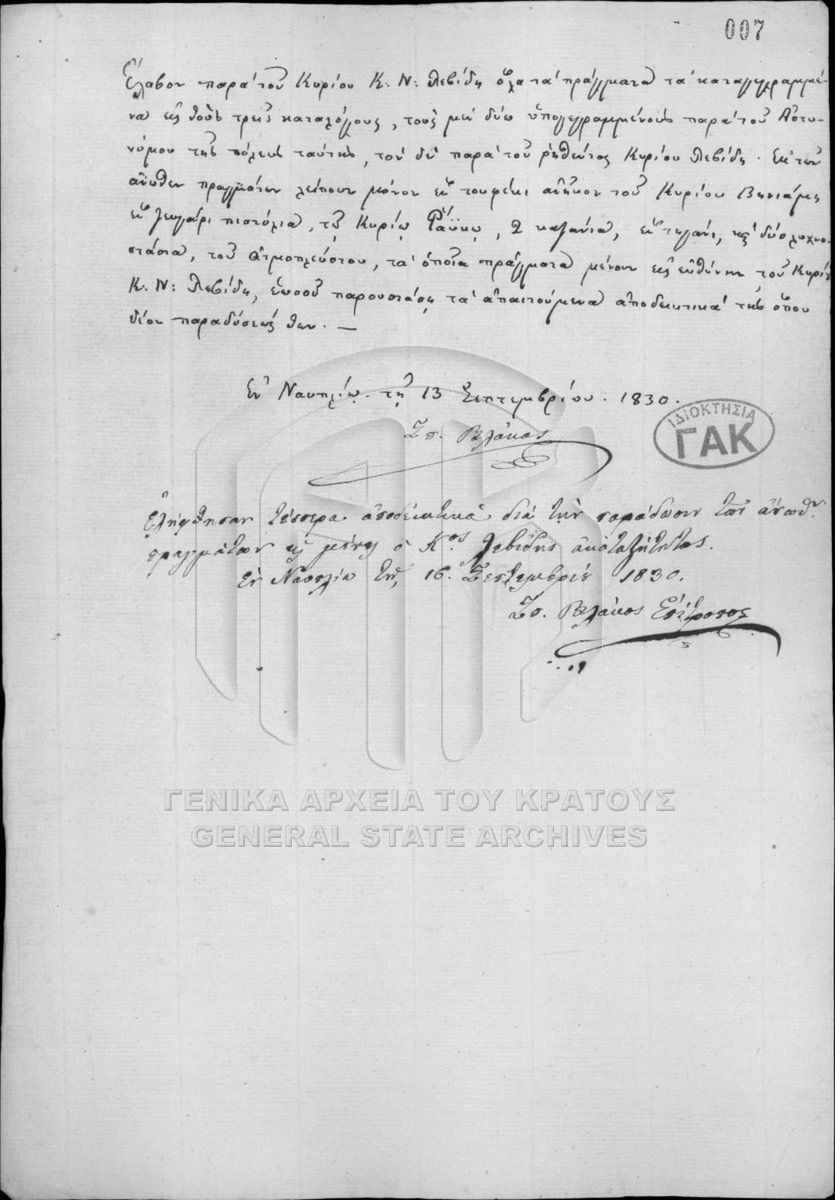 007
Ἔλαβον παρὰ τοῦ Κυρίου Κ. Ν: Λεβίδη ὅλα τὰ πράγματα τὰ καταγεγραμμέ-
να εἰς τοὺς τρεῖς καταλόγους, τοὺς μὲν δύω ὑπογεγραμμένους παρὰ τοῦ Ἀστυ-
νόμου τῆς πόλεως ταύτης, τὸν δὲ παρὰ τοῦ ῥηθέντος Κυρίου Λεβίδη. Ἐκ τῶν
ἄνωθεν πραγμάτων λείπουν μόνον ἓν τουφέκι ἀνῆκον τοῦ Κυρίου
ἓν ζευγάρι πιστόλια, τῷ Κυρίῳ , 2 καζάνια, ἓν τηγάνι, καὶ δύο λυχνο-
στάσια, τοῦ Ἀτμοπλεύστου, τὰ ὁποῖα πράγματα μένουν εἰς εὐθύνην τοῦ Κυρίου
Κ. Ν: Λεβίδη, ἑωσοῦ παρουσιάσῃ τὰ ἀπαιτούμενα ἀποδεικτικὰ τῆς ὅπου
δέον παραδόσεώς των. —
Ἐν Ναυπλίῳ τῇ 13 Σεπτεμβρίου. 1830.
Σπ. Βλάκος
ΙΔΙΟΚΤΗΣΙΑ
ΓΑΚ
Ἐλήφθησαν τέσσερα ἀποδεικτικὰ διὰ τὴν παράδωσιν τῶν ἄνωθ:
πραγμάτων καὶ μένει ὁ Κος Λεβίδης ἀκαταζήτητος.
Ἐν Ναυπλίῳ τῇ 16. Σεπτεμβρίου 1830.
Σπ. Βλάκος Ἐπίτροπος
ΓΕΝΙΚΑ ΑΡΧΕΙΑ ΤΟΥ ΚΡΑΤΟΥΣ
GENERAL STATE ARCHIVES